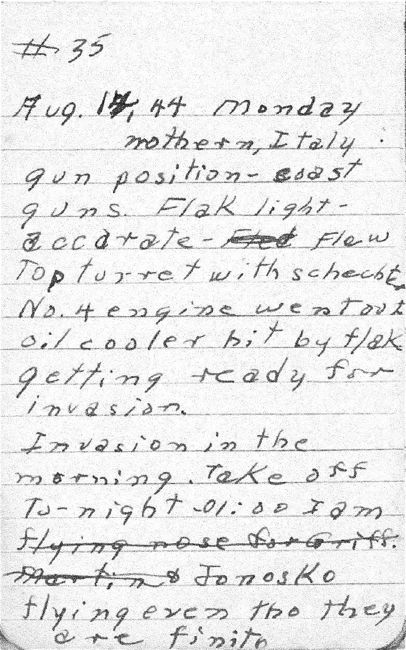 # 35
Aug. 14, 44 Monday
nothern, Italy.
gun position - coast
guns. Flak light -
accurate - Flew
Top turret with schecht
No. 4 engine went out
oil cooler hit by flak
getting ready for
invasion.
Invasion in the
morning. Take off
To-night -01:00 I am
flying nose for Griff.
Martin & Jonosko
flying even tho they
are finito